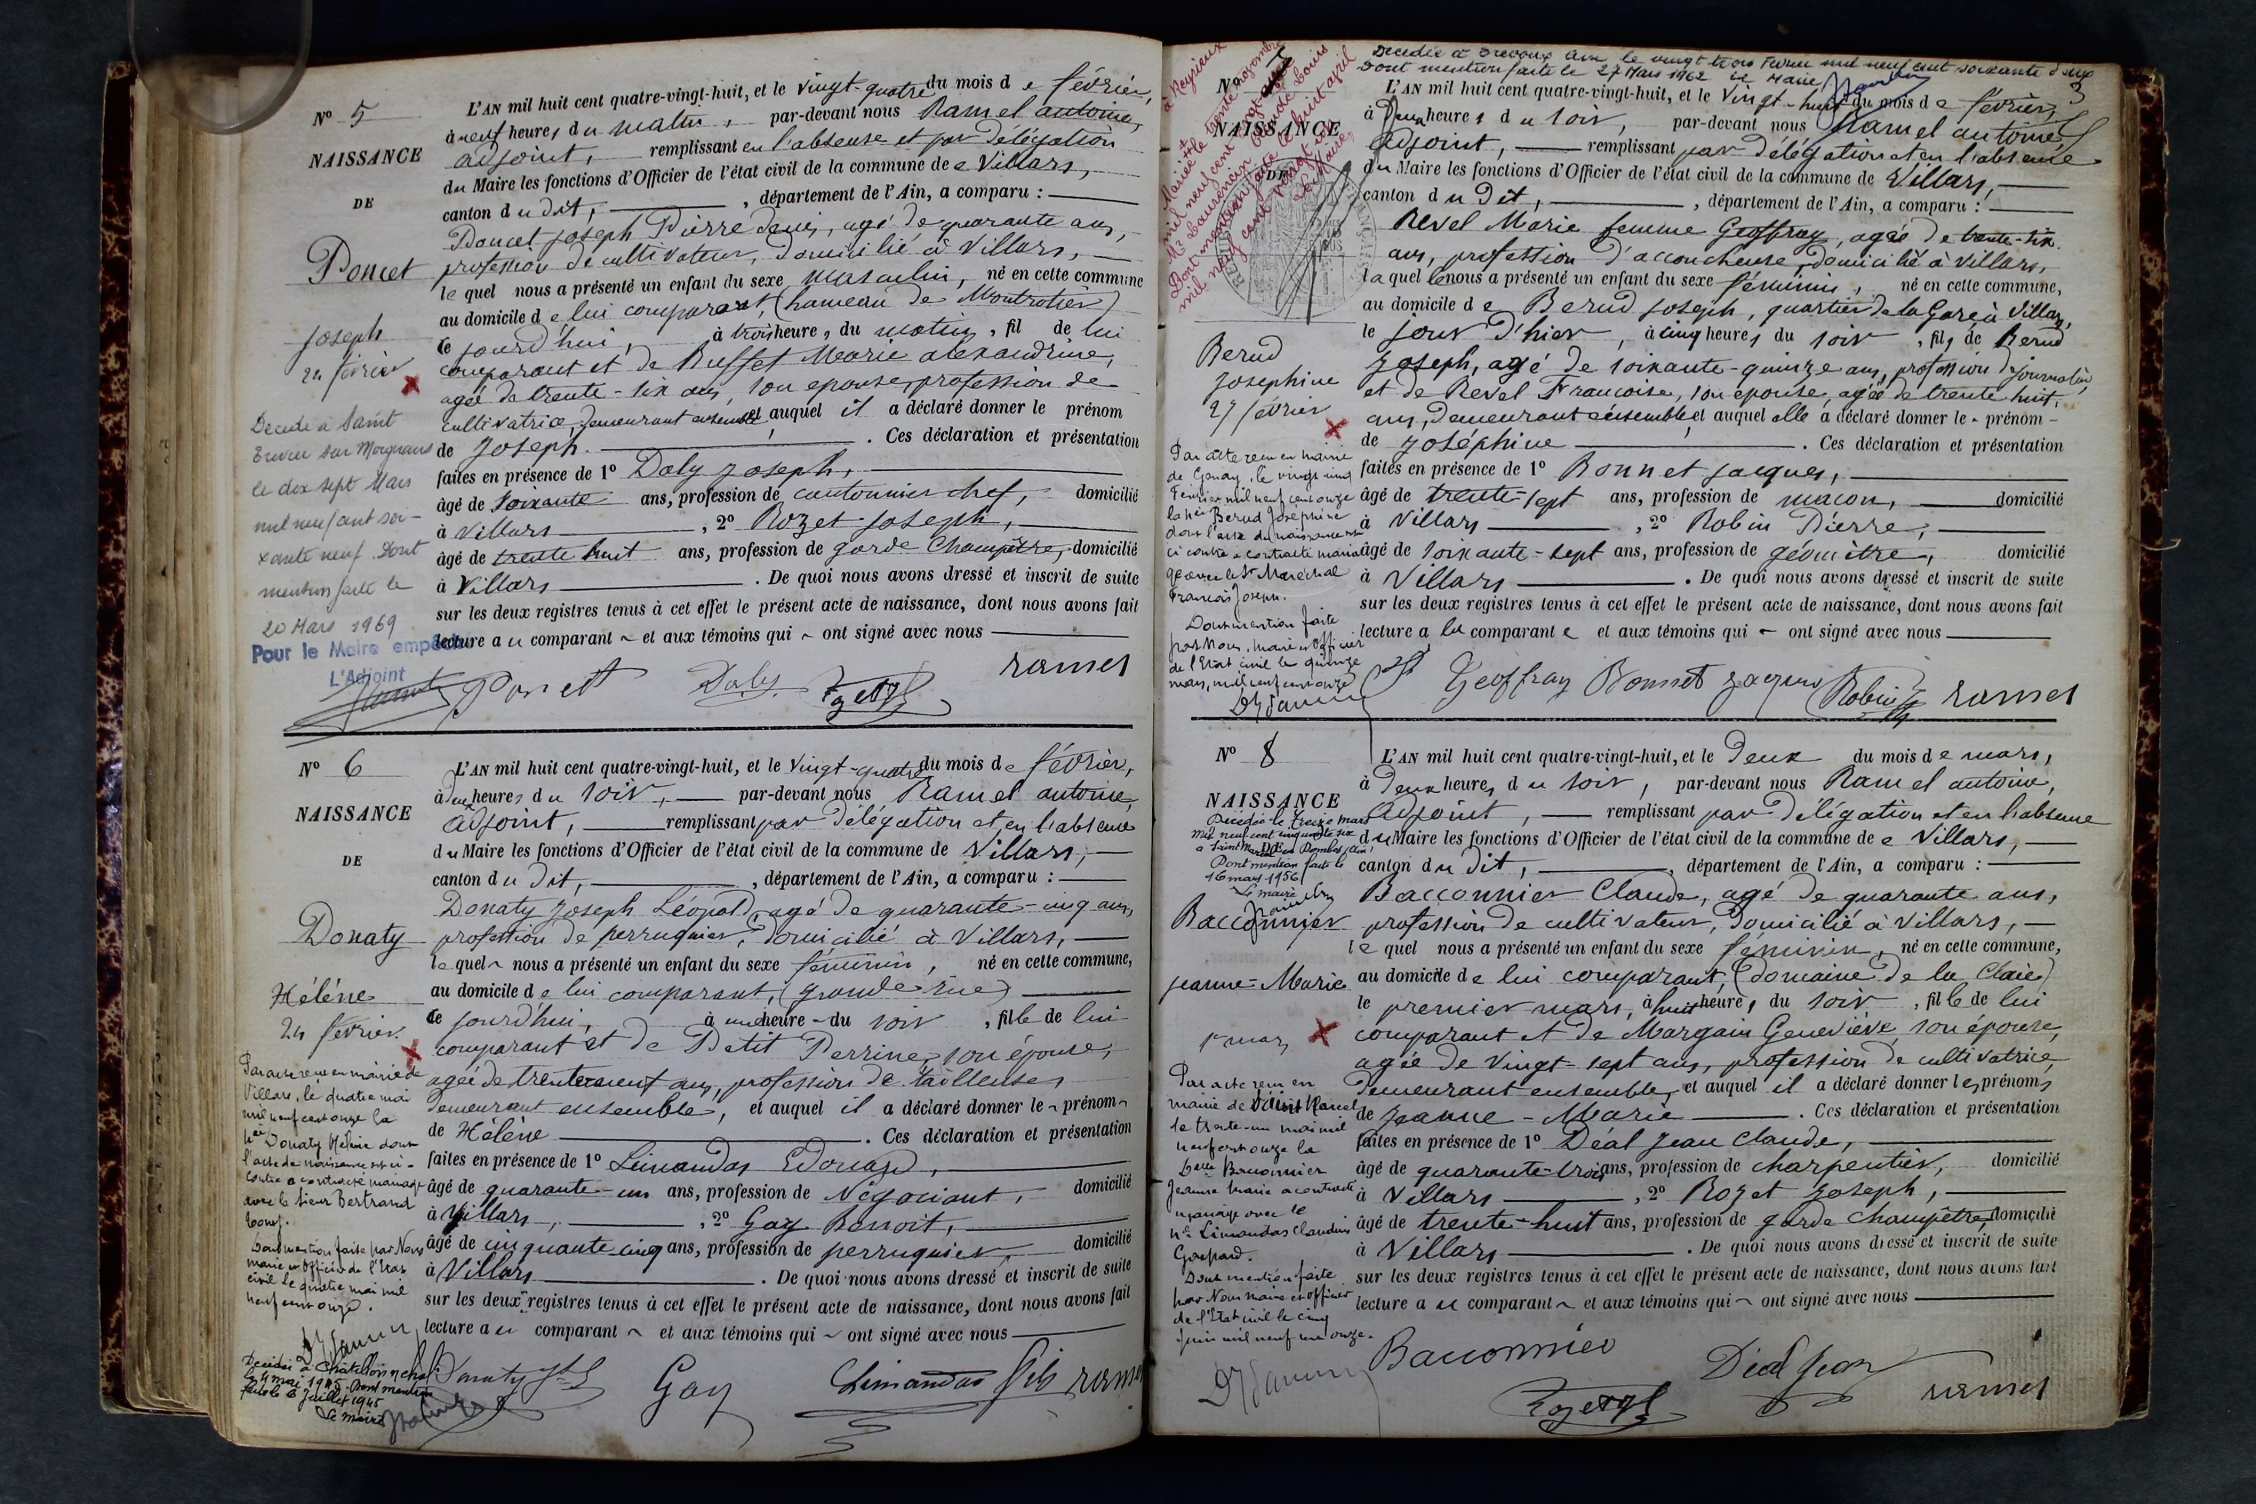 N° 5
NAISSANCE
DE
Poncet
Joseph
24 février
Décédé à Saint
le dix sept Mars
mil neuf cent soi-
xante neuf Dont
mention faite le
20 Mars 1969
Pour le Maire empêché
L'Adjoint
L'AN mil huit cent quatre-vingt-huit, et le vingt-quatre du mois de février,
à neuf heures du matin, par-devant nous Ramel antoine,
adjoint, remplissant en l'absence et par délégation
du Maire les fonctions d'Officier de l'état civil de la commune de Villars,
canton du dit, département de l'Ain, a comparu :
Poncet Joseph Pierre Denis, agé de quarante ans,
profession de cultivateur, domicilié à Villars,
le quel nous a présenté un enfant du sexe masculin, né en cette commune
au domicile de lui comparant, (hameau de Montrotier)
ce jourd'hui, à trois heures du matin, fil de lui
comparant et de Buffet Marie alexandrine,
agée de trente-six ans, son epouse, profession de
cultivatrice, demeurant ensemble, et auquel il a déclaré donner le prénom
de Joseph. Ces déclaration et présentation
faites en présence de 1° Daly Joseph,
âgé de soixante ans, profession de cantonnier chef, domicilié
à Villars, 2° Rozet Joseph,
âgé de trente huit ans, profession de garde champêtre, domicilié
à Villars. De quoi nous avons dressé et inscrit de suite
sur les deux registres tenus à cet effet le présent acte de naissance, dont nous avons fait
lecture au comparant et aux témoins qui ont signé avec nous
Poncet Daly Rozet ramel
N° 6
NAISSANCE
DE
Donaty
Hélène
24 février.
Par acte reçu en mairie de
Villars, le quatre mai
mil neuf cent onze la
née Donaty Hélène dont
l'acte de naissance est ci-
contre a contracté mariage
avec le sieur Bertrand
Dont mention faite par Nous
maire et Officier de l'Etat
civil le quatre mai mil
neuf cent onze.
le 4 mai 1945. Dont mention
faite le 6 Juillet 1945
Le maire
L'AN mil huit cent quatre-vingt-huit, et le vingt-quatre du mois de février,
à deux heures du soir, par-devant nous Ramel antoine,
adjoint, remplissant par délégation et en l'absence
du Maire les fonctions d'Officier de l'état civil de la commune de Villars,
canton du dit, département de l'Ain, a comparu :
Donaty Joseph Léopold, agé de quarante-cinq ans,
profession de perruquier, domicilié à Villars,
le quel nous a présenté un enfant du sexe féminin, né en cette commune,
au domicile de lui comparant, (grande rue)
ce jourd'hui, à une heure du soir, fille de lui
comparant et de Petit Perrine, son épouse,
agée de trente neuf ans, profession de tailleuse,
demeurant ensemble, et auquel il a déclaré donner le prénom
de Hélène. Ces déclaration et présentation
faites en présence de 1° Limandas Edouard,
âgé de quarante-un ans, profession de Négociant, domicilié
à Villars, 2° Gay Benoit,
âgé de cinquante cinq ans, profession de perruquier, domicilié
à Villars. De quoi nous avons dressé et inscrit de suite
sur les deux registres tenus à cet effet le présent acte de naissance, dont nous avons fait
lecture au comparant et aux témoins qui ont signé avec nous
Donaty Gay Limandas fils ramel
Dont mention faite le 27 Mars 1962 le Maire
3
N° 7
NAISSANCE
DE
Berud
Josephine
27 février
Par acte reçu en mairie
de Genay, le vingt cinq
Février mil neuf cent onze
la née Berud Joséphine
dont l'acte de naissance est
ci contre a contracté mariage
avec le Sr Maréchal
François Joseph.
Dont mention faite
par Nous, maire et Officier
de l'Etat civil le quinze
mars, mil neuf cent onze
L'AN mil huit cent quatre-vingt-huit, et le vingt-huit du mois de février,
à deux heures du soir, par-devant nous Ramel antoine,
adjoint, remplissant par délégation et en l'absence
du Maire les fonctions d'Officier de l'état civil de la commune de Villars,
canton du dit, département de l'Ain, a comparu :
Revel Marie femme Geoffray, agée de trente-six
ans, profession d'accoucheuse, domicilié à Villars,
la quelle nous a présenté un enfant du sexe féminin, né en cette commune,
au domicile de Berud Joseph, quartier de la Gare à Villars,
le jour d'hier, à cinq heures du soir, fils de Berud
Joseph, agé de soixante-quinze ans, profession de journalier,
et de Revel Francoise, son épouse, agée de trente huit
ans, demeurant ensemble, et auquel elle a déclaré donner le prénom
de Joséphine. Ces déclaration et présentation
faites en présence de 1° Bonnet Jacques,
âgé de trente-sept ans, profession de macon, domicilié
à Villars, 2° Robin Pierre,
âgé de soixante-sept ans, profession de géomètre, domicilié
à Villars. De quoi nous avons dressé et inscrit de suite
sur les deux registres tenus à cet effet le présent acte de naissance, dont nous avons fait
lecture a la comparante et aux témoins qui ont signé avec nous
Geoffray Bonnet Jacques Robin ramel
N° 8
NAISSANCE
DE
Décédée le treize mars
mil neuf cent cinquante six
à Saint Marcel en Dombes (Ain)
Dont mention faite le
16 mars 1956
Le maire
Bacconnier
Jeanne-Marie
1er mars
Par acte reçu en
mairie de Saint Marcel
le trente-un mai mil
neuf cent onze la
Delle Bacconnier
Jeanne Marie a contracté
mariage avec le
né Limandas Claudius
Gaspard.
Dont mention faite
par Nous maire et officier
de l'Etat civil le cinq
juin mil neuf cent onze.
L'AN mil huit cent quatre-vingt-huit, et le deux du mois de mars,
à deux heures du soir, par-devant nous Ramel antoine,
adjoint, remplissant par délégation et en l'absence
du Maire les fonctions d'Officier de l'état civil de la commune de Villars,
canton du dit, département de l'Ain, a comparu :
Bacconnier Claude, agé de quarante ans,
profession de cultivateur, domicilié à Villars,
le quel nous a présenté un enfant du sexe féminin, né en cette commune,
au domicile de lui comparant, (domaine de la Claie)
le premier mars, à huit heures du soir, fille de lui
comparant et de Margain Geneviève, son épouse,
agée de vingt-sept ans, profession de cultivatrice,
demeurant ensemble, et auquel il a déclaré donner les prénoms
de Jeanne-Marie. Ces déclaration et présentation
faites en présence de 1° Déal Jean Claude,
âgé de quarante-trois ans, profession de charpentier, domicilié
à Villars, 2° Rozet Joseph,
âgé de trente-huit ans, profession de garde champêtre, domicilié
à Villars. De quoi nous avons dressé et inscrit de suite
sur les deux registres tenus à cet effet le présent acte de naissance, dont nous avons fait
lecture au comparant et aux témoins qui ont signé avec nous
Bacconnier Déal Jean
Rozet ramel